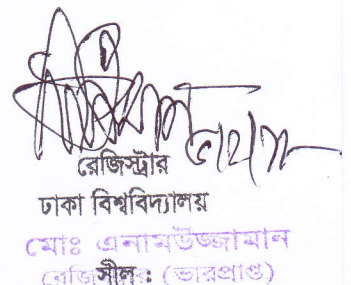 রেজিস্ট্রার
ঢাকা বিশ্ববিদ্যালয়
মোঃ এনামউজ্জামান
রেজিস্ট্রার (ভারপ্রাপ্ত)
সীল :